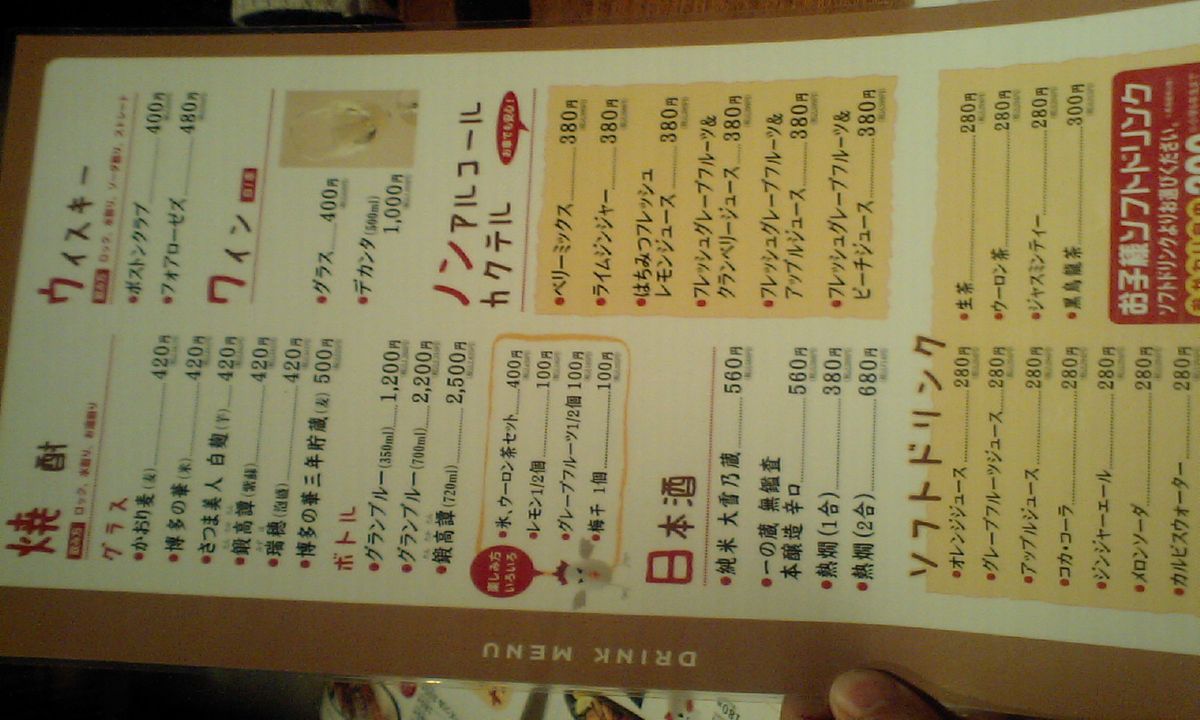 焼酎
飲み方 ロック、水割り、お湯割り
グラス
●かおり麦(麦) 420円
●博多の華(米) 420円
●さつま美人 白麹(芋) 420円
●鍛高譚(紫蘇) 420円
●瑞穂(泡盛) 420円
●博多の華三年貯蔵(麦) 500円
ボトル
●グランブルー(350ml) 1,200円
●グランブルー(700ml) 2,200円
●鍛高譚(720ml) 2,500円
楽しみ方いろいろ
●氷、ウーロン茶セット 400円
●レモン1/2個 100円
●グレープフルーツ1/2個 100円
●梅干 1個 100円
日本酒
●純米 大雪乃蔵 560円
●一の蔵 無鑑査
本醸造 辛口 560円
●熱燗(1合) 380円
●熱燗(2合) 680円
ウィスキー
飲み方 ロック、水割り、ソーダ割り、ストレート
●ボストンクラブ 400円
●フォアローゼズ 480円
ワイン 白/赤
●グラス 400円
●デカンタ(500ml)
1,000円
ノンアルコール
カクテル
お車でも安心!
●ベリーミックス 380円
●ライムジンジャー 380円
●はちみつフレッシュ
レモンジュース 380円
●フレッシュグレープフルーツ&
クランベリージュース 380円
●フレッシュグレープフルーツ&
アップルジュース 380円
●フレッシュグレープフルーツ&
ピーチジュース 380円
ソフトドリンク
●オレンジジュース 280円
●グレープフルーツジュース 280円
●アップルジュース 280円
●コカ・コーラ 280円
●ジンジャーエール 280円
●メロンソーダ 280円
●カルピスウォーター 280円
●生茶 280円
●ウーロン茶 280円
●ジャスミンティー 280円
●黒烏龍茶 300円
お子様ソフトドリンク
ソフトドリンクよりお選びください。
DRINK MENU